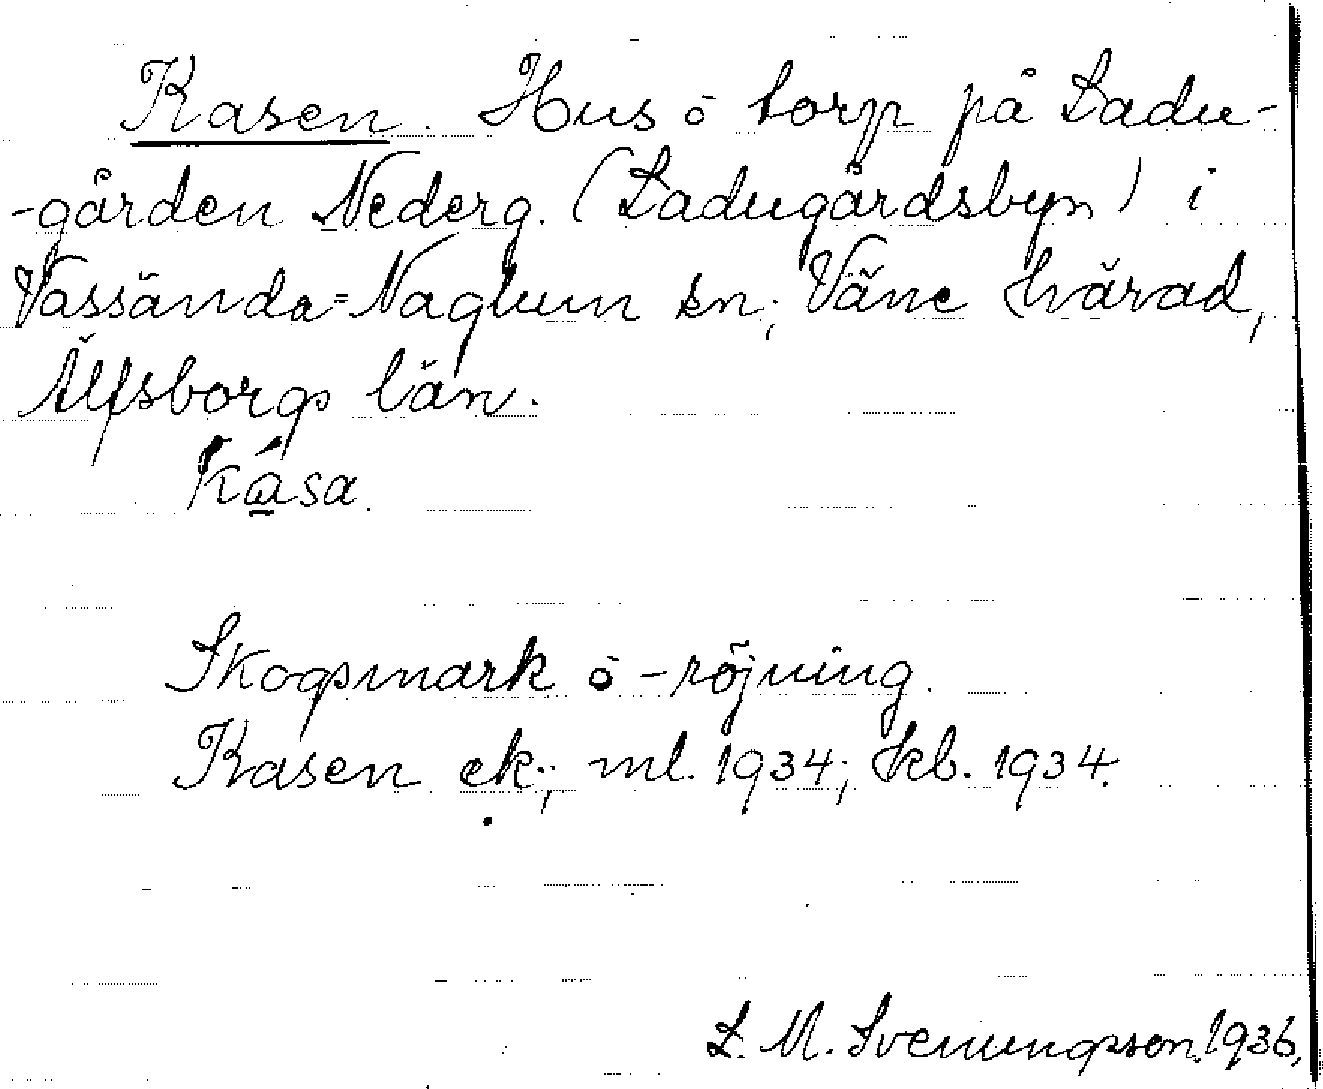 Kasen. Hus ō torp på Ladu-
-gården Nederg. (Ladugårdsbyn) i
Vassända-Naglum sn; Väne härad,
Älfsborgs län.
Ka̲sa.
Skogsmark ō -röjning.
Kasen ek.; ml. 1934; kb. 1934.
L. M. Svenungsson. 1936.